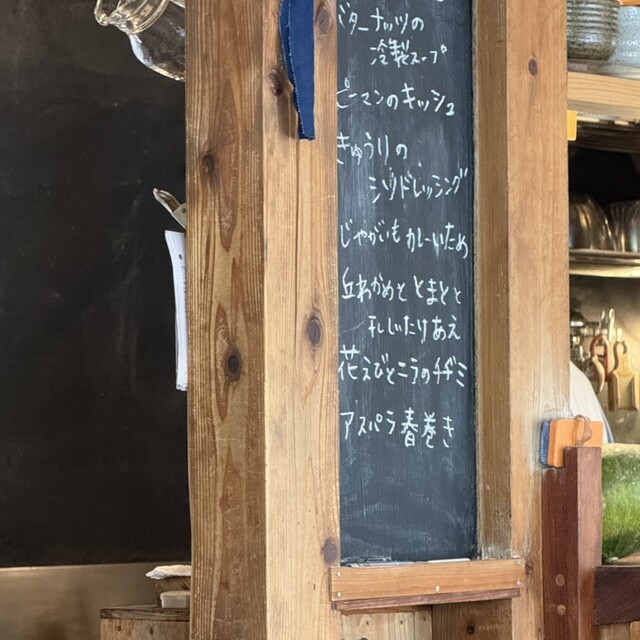 バターナッツの
冷製スープ
ピーマンのキッシュ
きゅうりの
シソドレッシング
じゃがいもカレーいため
丘わかめとトマトと
干しじたりあえ
花えびとニラのチヂミ
アスパラ春巻き